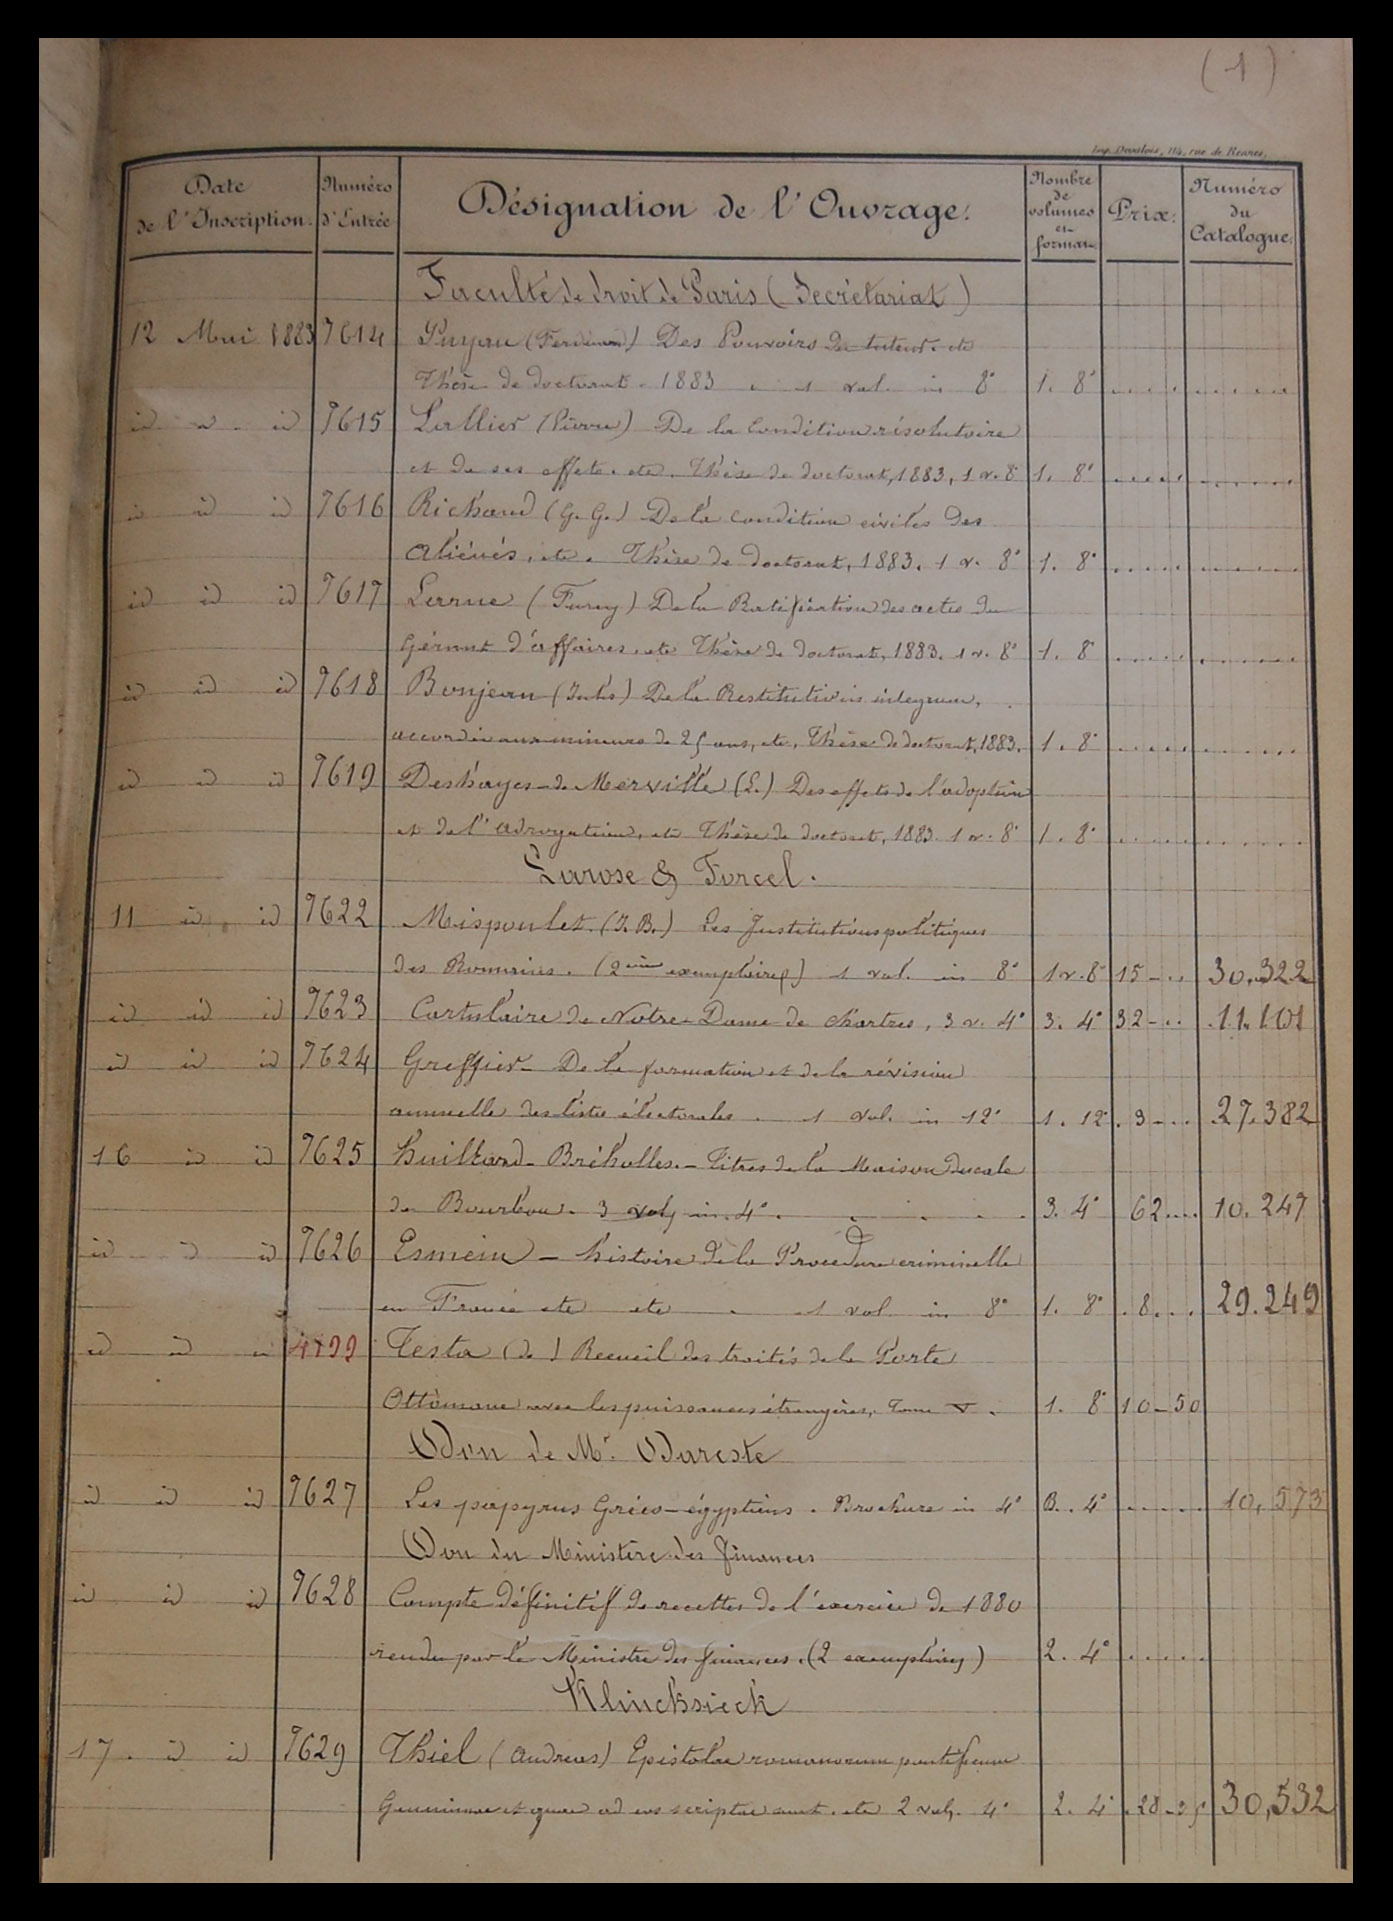 (1)
Imp. Devalois, 114, rue de Rennes.
Date de l'Inscription. Numéro d'Entrée Désignation de l'Ouvrage. Nombre de volumes et format. Prix. Numéro du Catalogue.
Faculté de droit de Paris (Secrétariat)
12 Mai 1883 7614 Puyau (Ferdinand) Des Pouvoirs du tuteur. etc
Thèse de doctorat. 1883 . 1 vol. in 8° 1. 8° ......
id id id 7615 Lallier (Pierre) De la Condition résolutoire
et de ses effets. etc. Thèse de doctorat, 1883, 1 v. 8° 1. 8° ......
id id id 7616 Richaud (G. G.) De la condition civiles des
aliénés, etc. Thèse de doctorat, 1883. 1 v. 8° 1. 8° ......
id id id 7617 Larue (Furcy) De la Ratification des actes du
Gérant d'affaires. etc Thèse de doctorat, 1883. 1 v. 8° 1. 8° ......
id id id 7618 Bonjean (Jules) De la Restitutio in integrum,
accordée aux mineurs de 25 ans, etc, Thèse de doctorat, 1883. 1. 8° ......
id id id 7619 Deshayes-de Merville (L.) Des effets de l'adoption
et de l'adrogation, etc Thèse de doctorat, 1883. 1 v. 8° 1. 8° ......
Larose & Forcel.
11 id id 7622 Mispoulet. (J. B.) Les Institutions politiques
des Romains. (2ème exemplaires) 1 vol. in 8° 1 v. 8° 15 - .. 30.322
id id id 7623 Cartulaire de Notre-Dame de Chartres, 3 v. 4° 3. 4° 32 - .. 11.101
id id id 7624 Greffier - De la formation et de la révision
annuelle des listes électorales . 1 vol. in 12° 1. 12° 3 - .. 27.382
16 id id 7625 Huillard-Bréholles. - Titres de la Maison Ducale
de Bourbon. 3 vol. in. 4° . . . . . 3. 4° 62 ... 10.247
id id id 7626 Esmein - histoire de la Procédure criminelle
en France etc etc . 1 vol in 8° 1. 8° . 8 ... 29.249
id id id 4799 Testa (de) Recueil des traités de la Porte
Ottomane avec les puissances étrangères, Tome V. 1. 8° 10-50
Don de Mr. Dareste
id id id 7627 Les papyrus Gréco-égyptiens. Brochure in 4° B. 4° ...... 10,573
Don du Ministère des finances
id id id 7628 Compte définitif de recettes de l'exercice de 1880
rendu par le Ministre des finances. (2 exemplaires) 2. 4° .....
Klincksieck
17. id id 7629 Thiel (Andreas) Epistolae romanorum pontificum
Genuinae et quae ad eos scriptae sunt. etc 2 vol. 4° 2. 4° 28-25 30,532